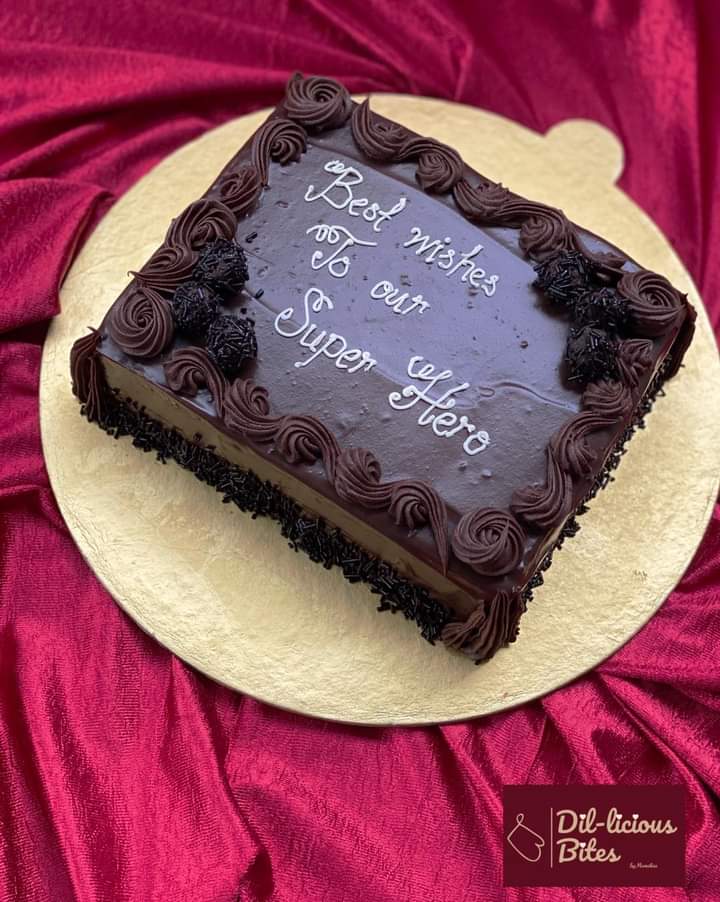 Best wishes
To our
Super Hero
Dil-licious
Bites